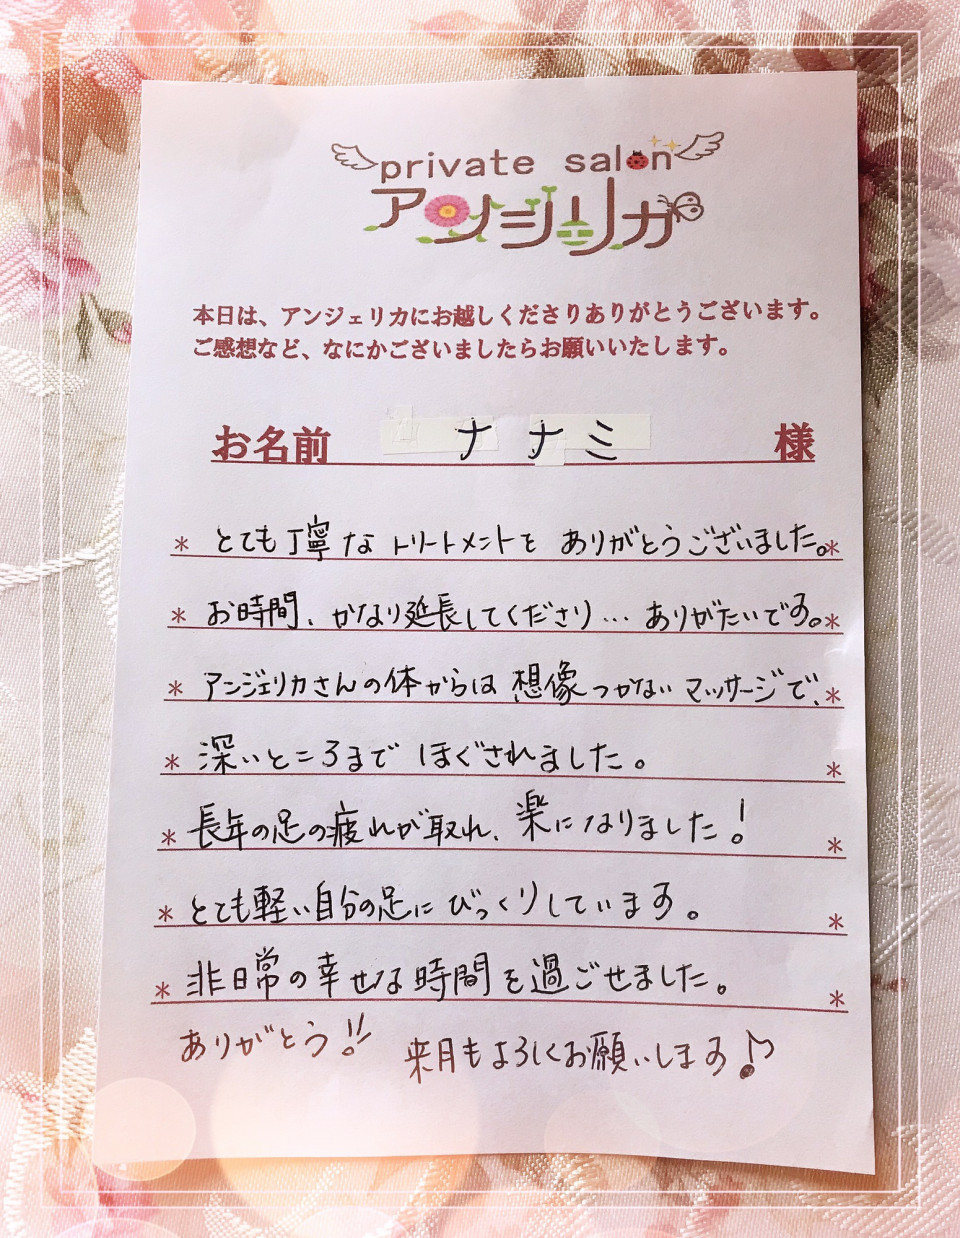 private salon
アンジェリカ
本日は、アンジェリカにお越しくださりありがとうございます。
ご感想など、なにかございましたらお願いいたします。
お名前 ナナミ 様
* とても丁寧なトリートメントを ありがとうございました。*
* お時間、かなり延長してくださり… ありがたいです。*
* アンジェリカさんの体からは想像つかないマッサージで、*
* 深いところまで ほぐされました。 *
* 長年の足の疲れが取れ、楽になりました! *
* とても軽い自分の足にびっくりしています。 *
* 非日常の幸せな時間を過ごせました。 *
ありがとう!! 来月もよろしくお願いします♪